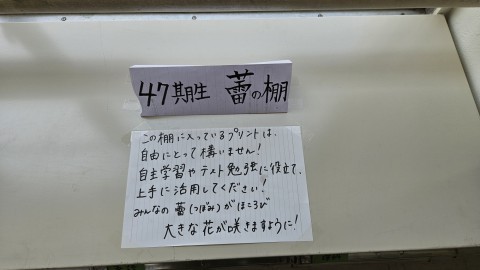 47期生 蕾の棚
この棚に入っているプリントは、
自由にとって構いません!
自主学習やテスト勉強に役立て、
上手に活用してください!
みんなの 蕾(つぼみ)がほころび
大きな花が咲きますように!